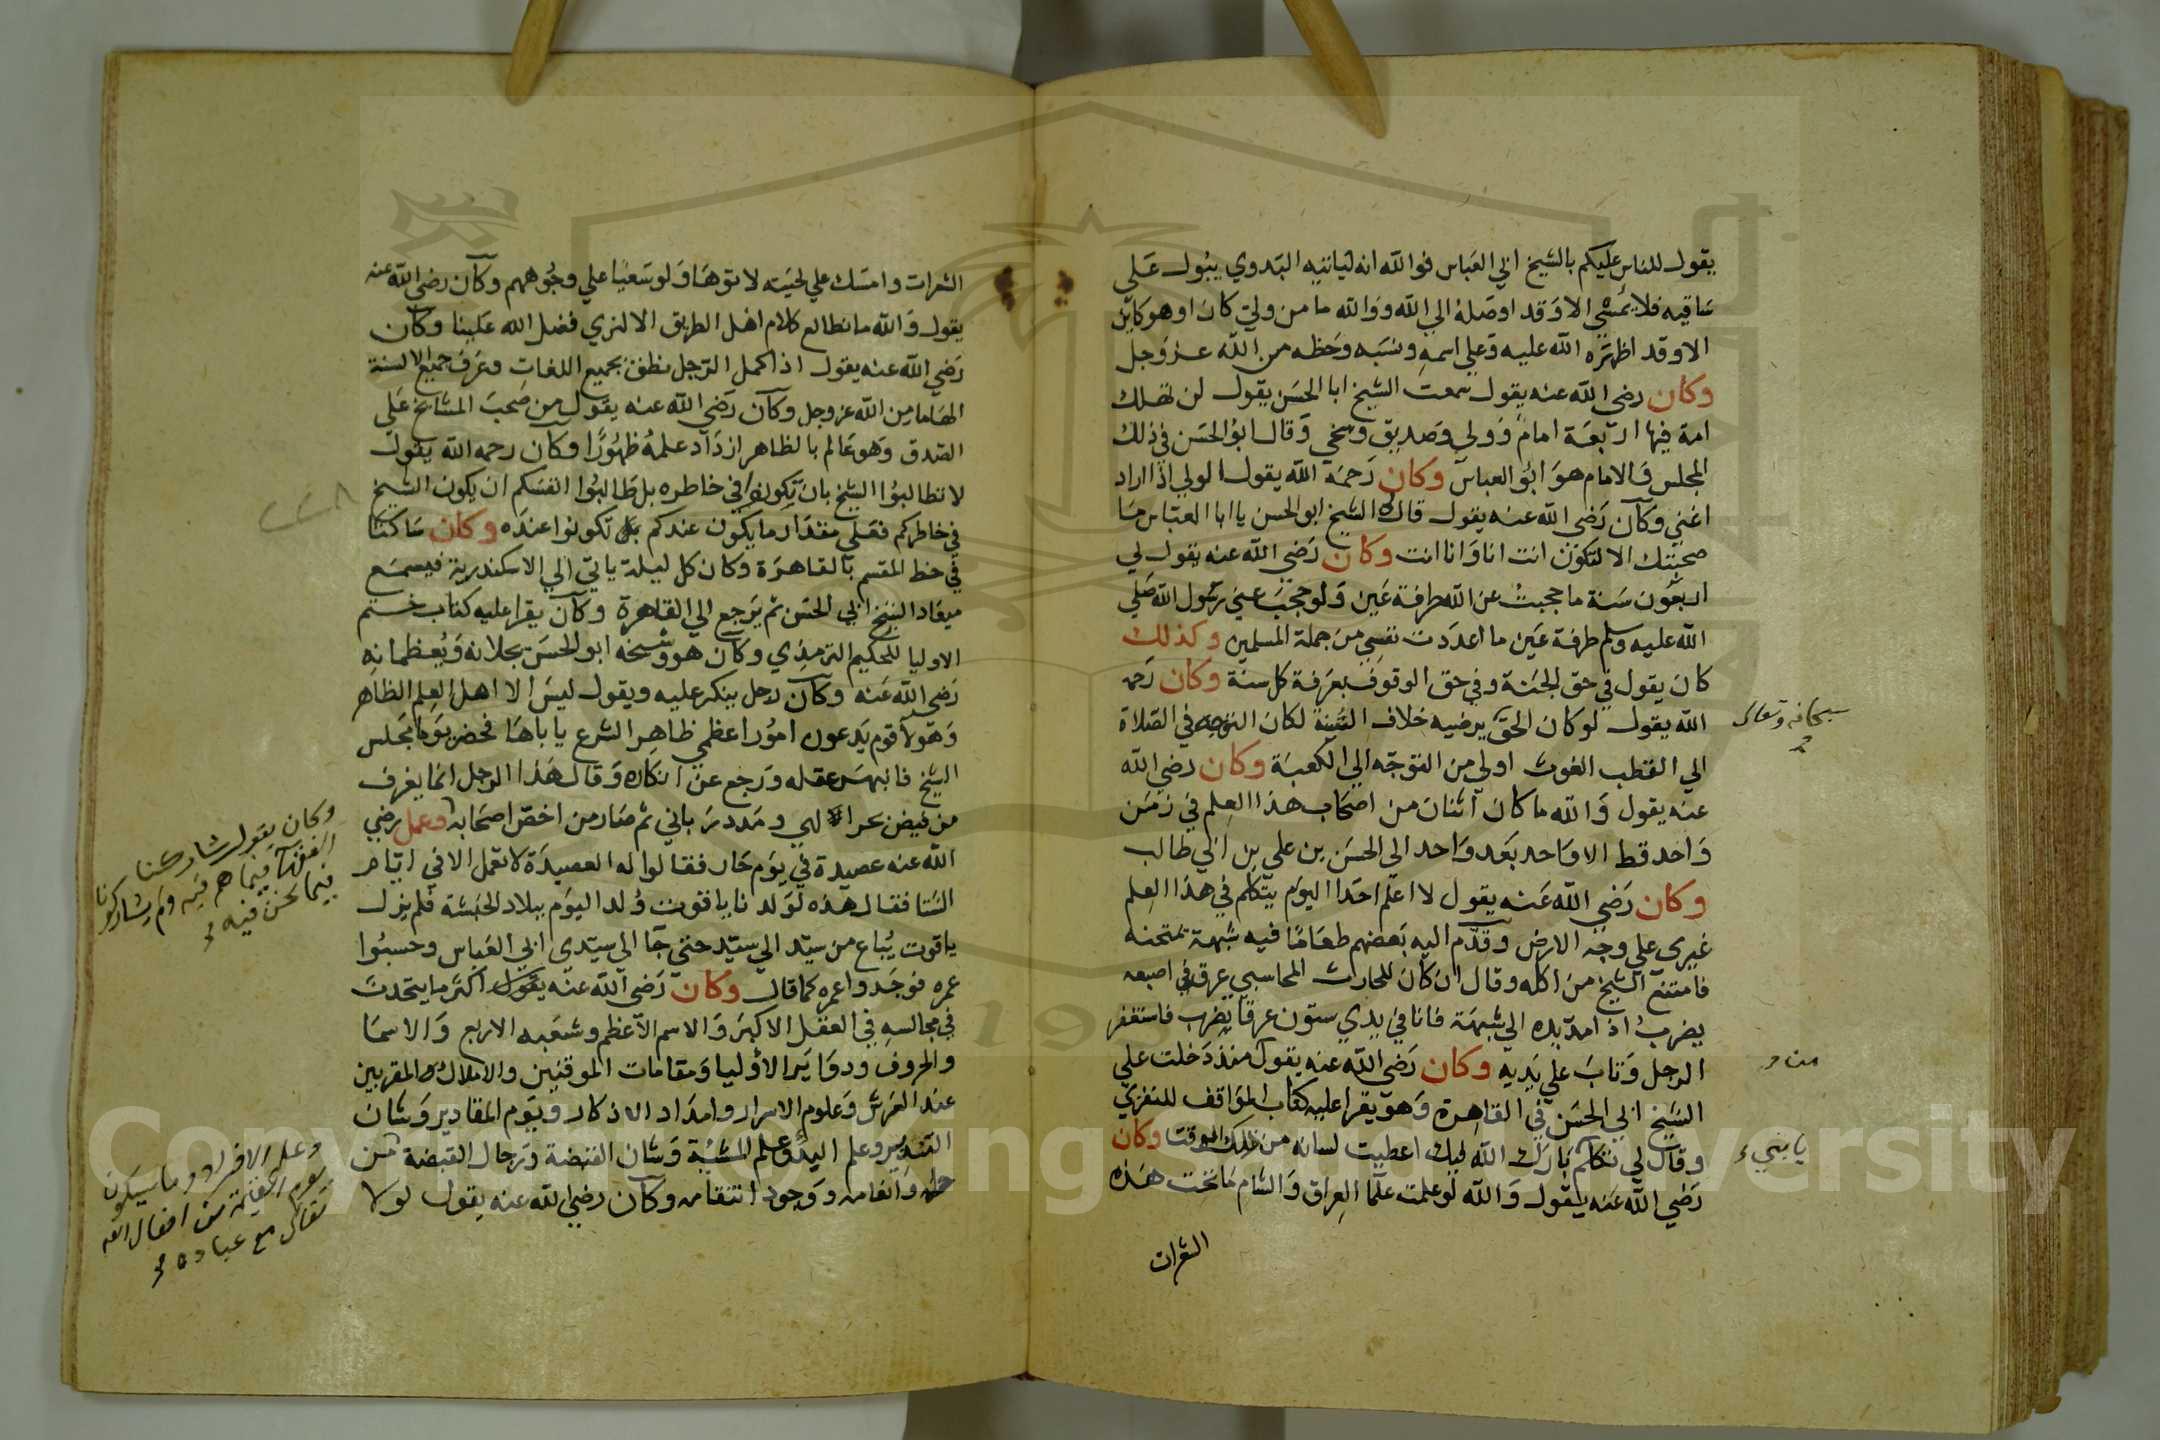 يقول للناس عليكم بالشيخ ابي العباس فوالله انه لياتيه البدوي يبول على
ساقيه فلا يمشي الا وقد اوصله الي الله ووالله ما من ولي كان او هو كاين
الا وقد اظهره الله عليه وعلي اسمه ونسبه وحظه من الله عز وجل
وكان رضي الله عنه يقول سمعت الشيخ ابا الحسن يقول لن تهلك
امة فيها اربعة امام وولي وصديق وسخي وقال ابو الحسن في ذلك
المجلس فالامام هو ابو العباس وكان رحمة الله يقول الولي اذا اراد
اغني وكان رضي الله عنه يقول قال له الشيخ ابو الحسن يا ابا العباس ما
صحبتك الا لتكون انت انا وانا انت وكان رضي الله عنه يقول لي
اربعون سنة ما حجبت عن الله طرفة عين ولو حجب عني رسول الله صلي
الله عليه وسلم طرفة عين ما اعددت نفسي من جملة المسلمين وكذلك
كان يقول في حق الجنة وفي حق الوقوف بعرفة كل سنة وكان رحمه
الله يقول لو كان الحق يرضيه خلاف السنة لكان التوجه في الصلاة
سبحانه وتعالى
الي القطب الغوث اولي من التوجه الي الكعبة وكان رضي الله
عنه يقول والله ما كان اثنان من اصحاب هذا العلم في زمن
واحد قط الا واحد بعد واحد الي الحسن بن علي بن ابي طالب
وكان رضي الله عنه يقول لا اعلم احدا اليوم يتكلم في هذا العلم
غيري علي وجه الارض وقدم اليه بعضهم طعاما فيه شبهة يمتحنه
فامتنع الشيخ من اكله وقال ان كان للحارث المحاسبي عرق في اصبعه
يضرب اذا مد يده الي شبهة فانا في يدي ستون عرقا يضرب فاستغفر
الرجل وتاب علي يديه وكان رضي الله عنه يقول منذ دخلت علي
الشيخ ابي الحسن في القاهرة وهو يقرا عليه كتاب المواقف للنفزي
وقال لي تكلم بارك الله فيك اعطيت لسانه من ذلك الوقت وكان
يا بني
رضي الله عنه يقول والله لو علمت علما العراق والشام ما تحت هذه
الشعرات
الشعرات وامسك علي لحيته لاتوها ولو سعيا علي وجوههم وكان رضي الله عنه
يقول والله ما نطالع كلام اهل الطريق الا لنري فضل الله علينا وكان
رضي الله عنه يقول اذا كمل الرجل نطق بجميع اللغات وعرف جميع الالسنة
الهاما من الله عز وجل وكان رضي الله عنه يقول من صحب المشايخ على
الصدق وهو عالم بالظاهر ازداد علمه ظهورا وكان رحمه الله يقول
لا تطالبوا الشيخ بان تكونوا في خاطره بل طالبوا انفسكم ان يكون الشيخ
في خاطركم فعلي مقدار ما يكون عندكم تكونوا عنده وكان ساكنا
في خط المقسم بالقاهرة وكان كل ليلة ياتي الي الاسكندرية فيسمع
ميعاد الشيخ ابي الحسن ثم يرجع الي القاهرة وكان يقرا عليه كتاب ختم
الاوليا للحكيم الترمذي وكان هو وشيخه ابو الحسن يجلانه ويعظمانه
رضي الله عنه وكان رجل ينكر عليه ويقول ليس الا اهل العلم الظاهر
وهولا قوم يدعون امورا عظمي ظاهر الشرع ياباها فحضر يوما مجلس
الشيخ فانبهر عقله ورجع عن انكاره وقال هذا الرجل انما يغرف
من فيض بحر الهي ومدد رباني ثم صار من اخص اصحابه وعمل رضي
الله عنه عصيدة في يوم حار فقالوا له العصيدة لا تعمل الا في ايام
وكان يقول شاركنا
الفقها فيما هم فيه ولم يشاركونا
فيما نحن فيه
الشتا فقال هذه لولدنا ياقوت ولد اليوم ببلاد الحبشة فلم يزل
ياقوت يباع من سيد الي سيد حتي جا الي سيدي ابي العباس وحسبوا
عمره فوجدوا عمره كما قال وكان رضي الله عنه يقول اكثر ما يتحدث
في مجالسه في العقل الاكبر والاسم الاعظم وشعبه الاربع والاسما
والحروف ودواير الاوليا ومقامات الموقنين والاملاك المقربين
عند العرش وعلوم الاسرار وامداد الاذكار ويوم المقادير وشان
التدبير وعلم البدو وعلم المشية وشان القبضة ورجال القبضة
وعلم الافراد وما سيكون
يوم القيامة من افعال الله
تعالى مع عباده
حلمه وانعامه ووجود انتقامه وكان رضي الله عنه يقول لولا
Copyright © King Saud University
195